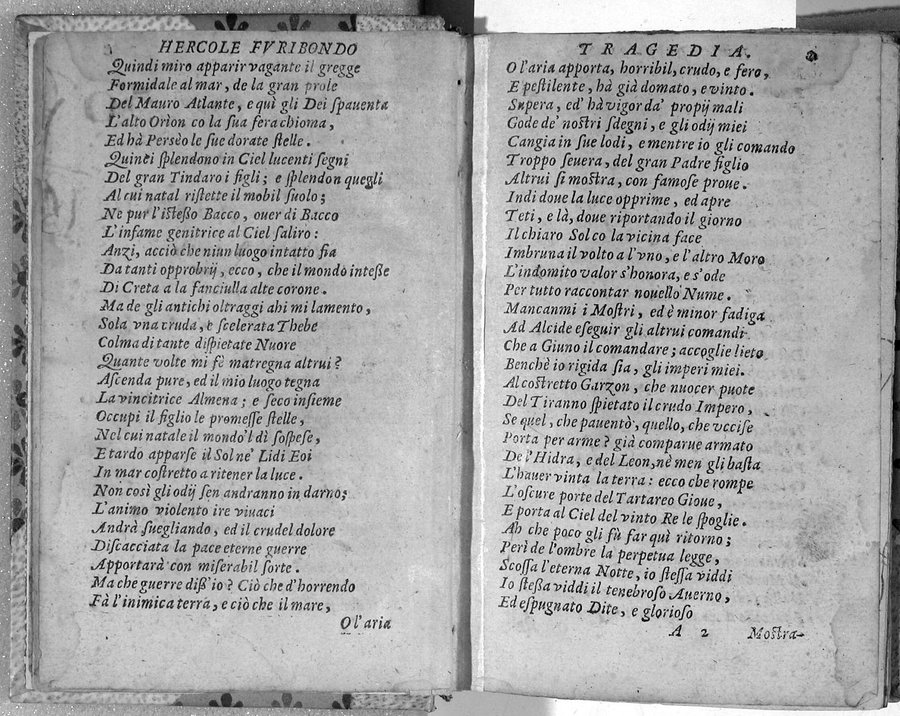 HERCOLE FVRIBONDO
Quindi miro apparir vagante il gregge
Formidale al mar, de la gran prole
Del Mauro Atlante, e quì gli Dei ſpauenta
L'alto Orìon co la ſua fera chioma,
Ed hà Persèo le ſue dorate ſtelle.
Quinci ſplendono in Ciel lucenti ſegni
Del gran Tindaro i figli; e ſplendon quegli
Al cui natal riſtette il mobil ſuolo;
Ne pur l'iſteßo Bacco, ouer di Bacco
L'infame genitrice al Ciel ſaliro:
Anzi, acciò che niun luogo intatto ſia
Da tanti opprobrij, ecco, che il mondo inteße
Di Creta a la fanciulla alte corone.
Ma de gli antichi oltraggi ahi mi lamento,
Sola vna cruda, e ſcelerata Thebe
Colma di tante diſpietate Nuore
Quante volte mi fè matregna altrui?
Aſcenda pure, ed il mio luogo tegna
La vincitrice Almena; e ſeco inſieme
Occupi il figlio le promeſſe ſtelle,
Nel cui natale il mondo'l dì ſoſpeſe,
E tardo apparſe il Sol ne' Lidi Eoi
In mar coſtretto a ritener la luce.
Non così gli odij ſen andranno in darno;
L'animo violento ire viuaci
Andrà ſuegliando, ed il crudel dolore
Diſcacciata la pace eterne guerre
Apportarà con miſerabil ſorte.
Ma che guerre diß'io? Ciò che d'horrendo
Fà l'inimica terra, e ciò che il mare,
O l'aria
TRAGEDIA.
2
O l'aria apporta, horribil, crudo, e fero,
E peſtilente, hà già domato, e vinto.
Supera, ed' hà vigor da' proprij mali
Gode de' noſtri ſdegni, e gli odij miei
Cangia in ſue lodi, e mentre io gli comando
Troppo ſeuera, del gran Padre figlio
Altrui ſi moſtra, con famoſe proue.
Indi doue la luce opprime, ed apre
Teti, e là, doue riportando il giorno
Il chiaro Sol co la vicina face
Imbruna il volto a l'vno, e l'altro Moro
L'indomito valor s'honora, e s'ode
Per tutto raccontar nouello Nume.
Mancanmi i Moſtri, ed è minor fadiga
Ad Alcide eſeguir gli altrui comandi
Che a Giuno il comandare; accoglie lieto
Benchè io rigida ſia, gli imperi miei.
Al coſtretto Garzon, che nuocer puote
Del Tiranno ſpietato il crudo Impero,
Se quel, che pauentò, quello, che vcciſe
Porta per arme? già comparue armato
De l'Hidra, e del Leon, nè men gli baſta
L'hauer vinta la terra: ecco che rompe
L'oſcure porte del Tartareo Gioue,
E porta al Ciel del vinto Re le ſpoglie.
Ah che poco gli fù far quì ritorno;
Perì de l'ombre la perpetua legge,
Scoſſa l'eterna Notte, io ſteſſa viddi
Io ſteßa viddi il tenebroſo Auerno,
Ed eſpugnato Dite, e glorioſo
A 2 Moſtra-